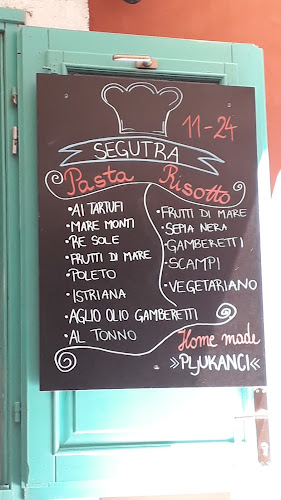 11-24
SEGUTRA
Pasta Risotto
• AI TARTUFI
• MARE MONTI
• RE SOLE
• FRUTTI DI MARE
• POLETO
• ISTRIANA
• AGLIO OLIO GAMBERETTI
• AL TONNO
• FRUTTI DI MARE
• SEPIA NERA
• GAMBERETTI
• SCAMPI
• VEGETARIANO
Home made
»PLJUKANCI«